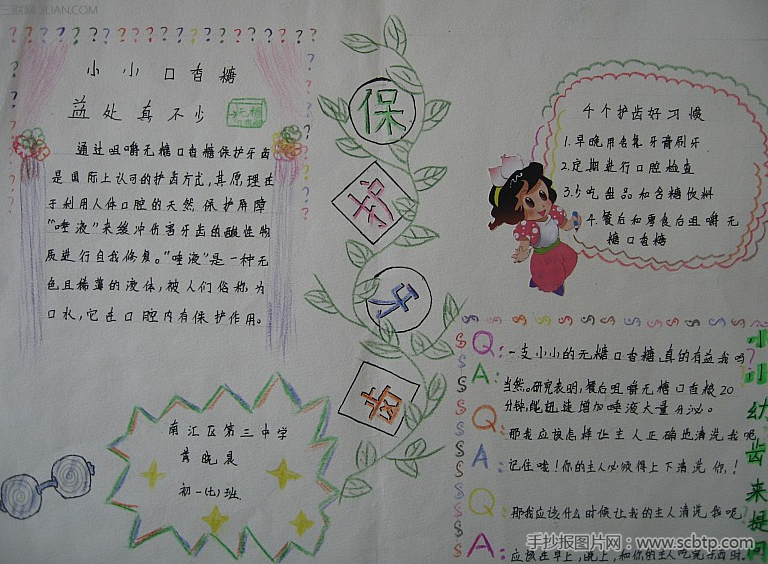 三联网 3LIAN.COM
小小口香糖
益处真不少
无糖
通过咀嚼无糖口香糖保护牙齿
是国际上认可的护齿方式,其原理在
于利用人体口腔的天然保护屏障
“唾液”来缓冲伤害牙齿的酸性物
质进行自我修复。“唾液”是一种无
色且稀薄的液体,被人们俗称为
口水,它在口腔内有保护作用。
南汇区第三中学
黄晓晨
初一(七)班
保
护
牙
齿
4个护齿好习惯
1.早晚用含氟牙膏刷牙
2.定期进行口腔检查
3.少吃甜品和含糖饮料
4.餐后和零食后咀嚼无
糖口香糖
小小幼齿来提问
Q:一支小小的无糖口香糖,真的有益我吗?
A:当然。研究表明,餐后咀嚼无糖口香糖20
分钟,能迅速增加唾液大量分泌。
Q:那我应该怎样让主人正确地清洗我呢
A:记住哦!你的主人必须得上下清洗你!
Q:那我应该什么时候让我的主人清洗我呢
A:应该在早上,晚上,和你的主人吃完东西时.
手抄报图片网:www.scbtp.com